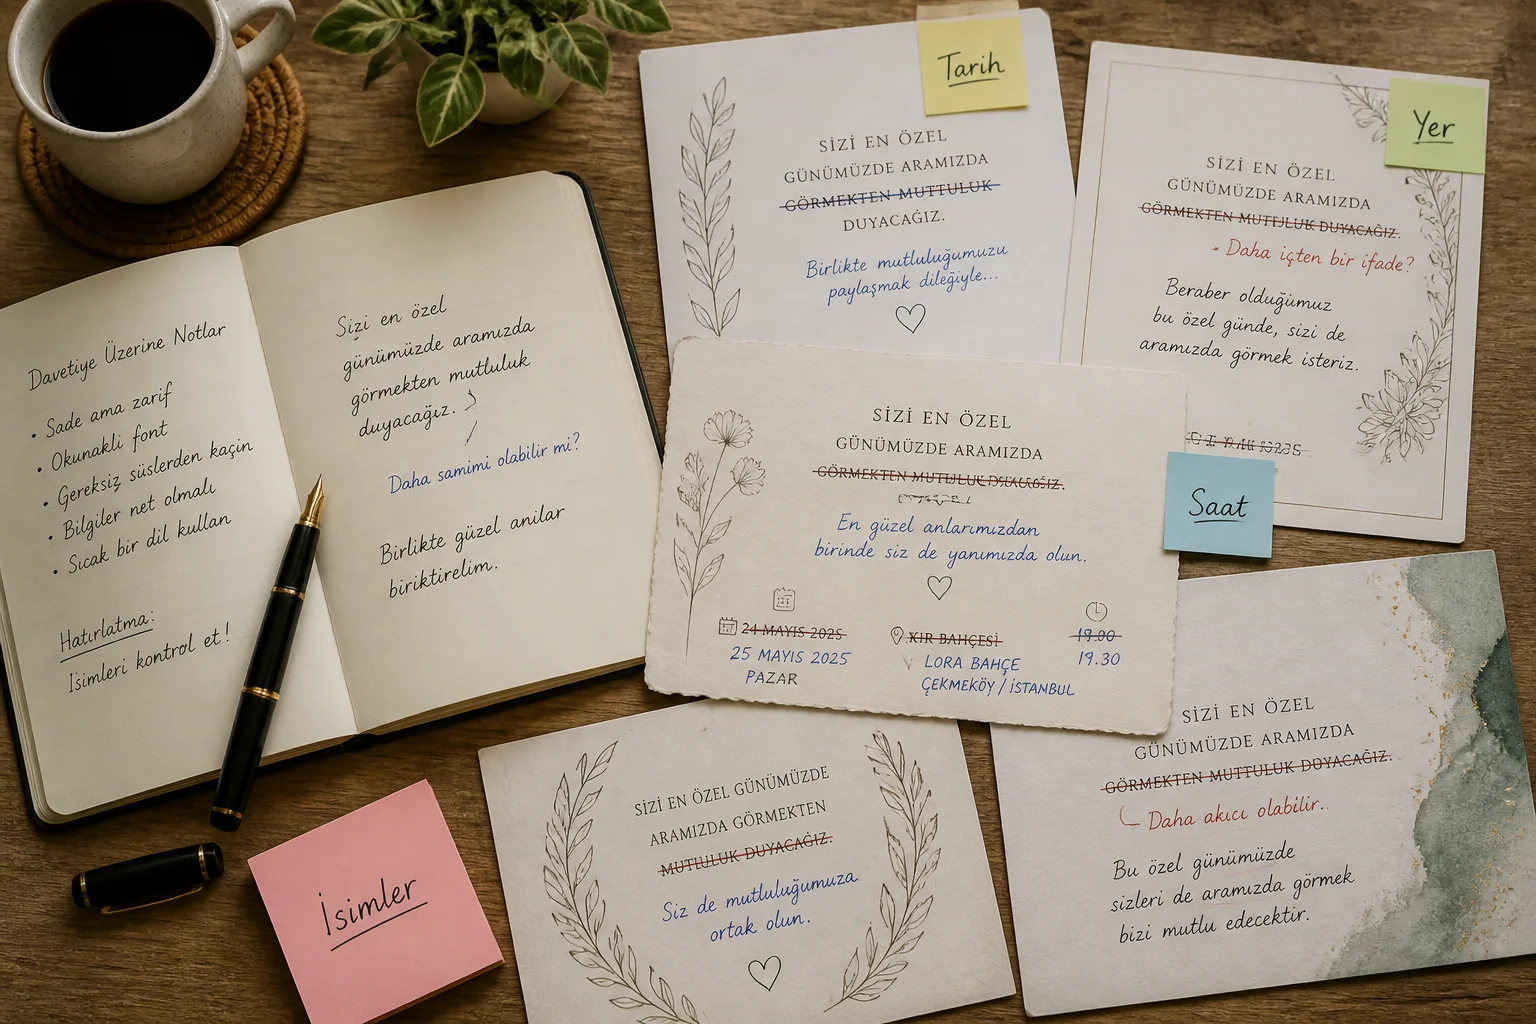 Davetiye Üzerine Notlar
• Sade ama zarif
• Okunakli font
• Gereksiz süslerden kaçin
• Bilgiler net olmalı
• Sıcak bir dil kullan
Hatırlatma:
İsimleri kontrol et!
Sizi en özel
günümüzde aramızda
görmekten mutluluk
duyacağız.
Daha samimi olabilir mi?
Birlikte güzel anilar
biriktirelim.
Tarih
SİZİ EN ÖZEL
GÜNÜMÜZDE ARAMIZDA
GÖRMEKTEN MUTTULUK
DUYACAĞIZ.
Birlikte mutluluğumuzu
paylaşmak dileğiyle...
Yer
SİZİ EN ÖZEL
GÜNÜMÜZDE ARAMIZDA
GÖRMEKTEN MUTLULUK DUYACAĞIZ.
- Daha içten bir ifade?
Beraber olduğumuz
bu özel günde, sizi de
aramızda görmek isteriz.
Saat
SİZİ EN ÖZEL
GÜNÜMÜZDE ARAMIZDA
GÖRMEKTEN
En güzel anlarımızdan
birinde siz de yanımızda olun.
24 MAYIS 2025
25 MAYIS 2025
PAZAR
KIR BAHÇESİ
LORA BAHÇE
ÇEKMEKÖY / İSTANBUL
19.00
19.30
İsimler
SİZİ EN ÖZEL GÜNÜMÜZDE
ARAMIZDA GÖRMEKTEN
MUTLULUK DUYACAĞIZ.
Siz de mutluluğumuza
ortak olun.
SİZİ EN ÖZEL
GÜNÜMÜZDE ARAMIZDA
GÖRMEKTEN MUTTULUK DUYACAĞIZ.
Daha akıcı olabilir..
Bu özel günümüzde
sizleri de aramızda görmek
bizi mutlu edecektir.